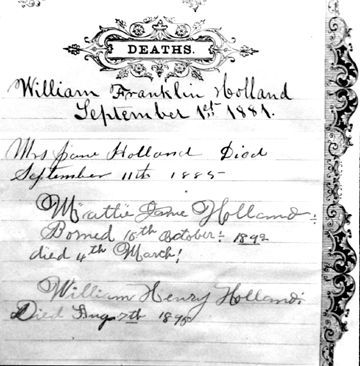 DEATHS.
William Franklin Holland
September 1st 1881.
Mrs Jane Holland Died
September 11th 1885
Mattie Jane Holland:
Borned 10th October: 1892
died 4th March!
William Henry Holland:
Died Aug 7th